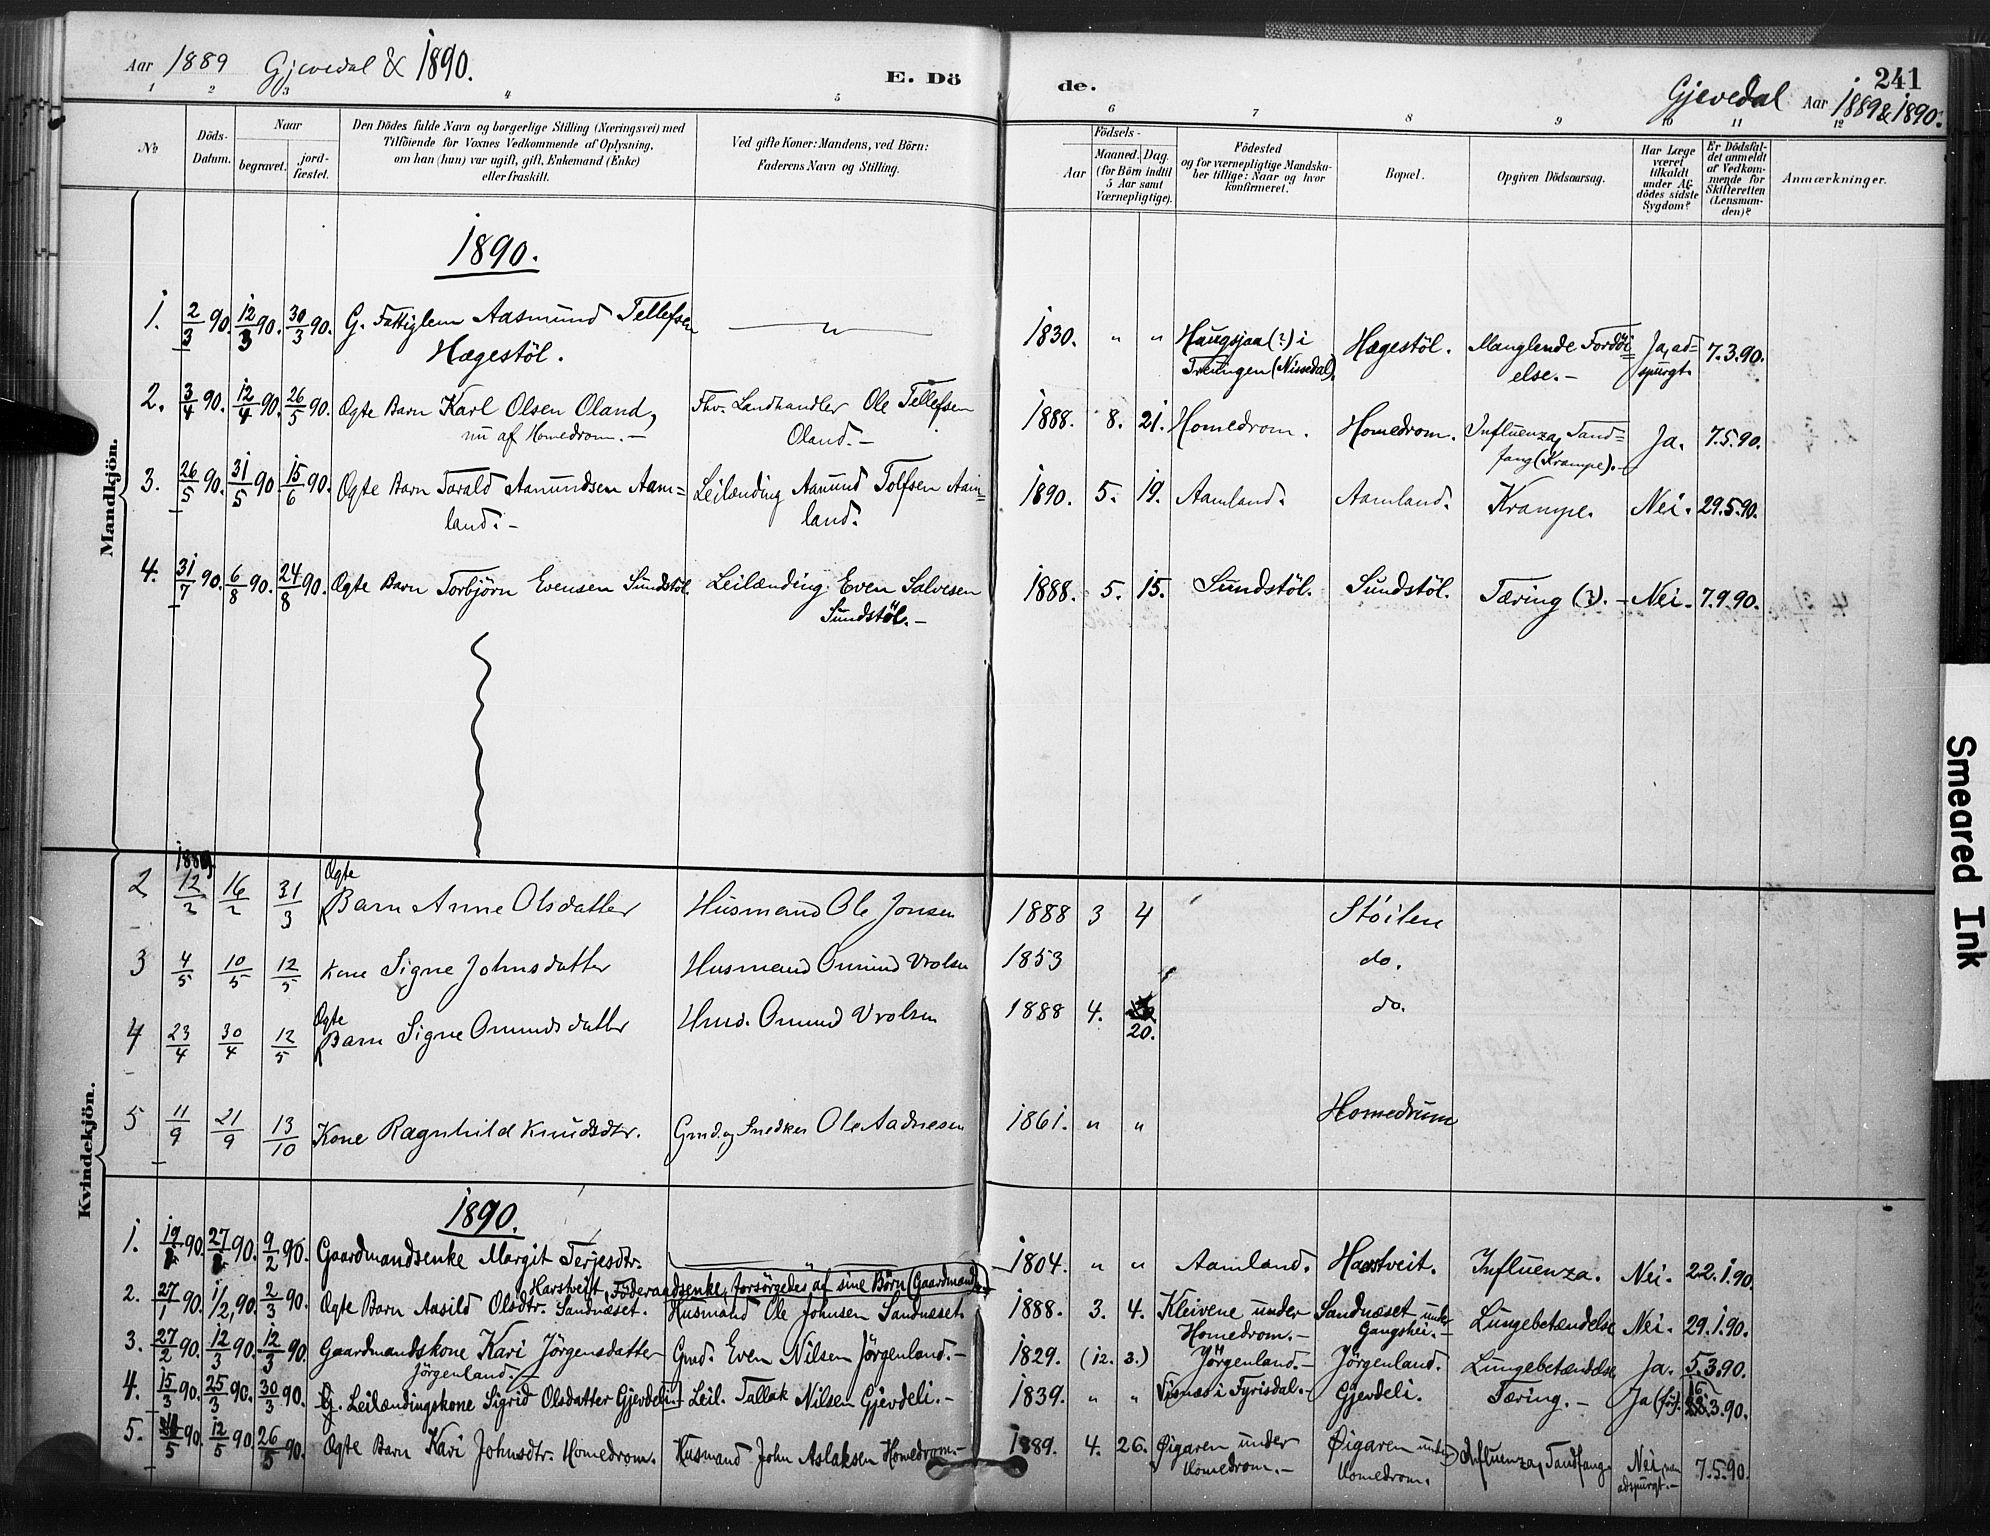 Aar 1889 Gjevedal & 1890.
E. Dö
de.
Gjevedal Aar 1889 & 1890.
241
1 2 3 4 5 6 7 8 9 10 11 12
No
Döds-Datum.
Naar
begravet.
jord-fæstet.
Den Dödes fulde Navn og borgerlige Stilling (Næringsvei) med
Tilföiende for Voxnes Vedkommende af Oplysning,
om han (hun) var ugift, gift, Enkemand (Enke)
eller fraskilt.
Ved gifte Koner: Mandens, ved Börn:
Faderens Navn og Stilling.
Födsels-
Aar
Maaned. Dag.
(for Börn indtil
5 Aar samt
Værnepligtige).
Födested
og for værnepligtige Mandska-
ber tillige: Naar og hvor
konfirmeret.
Bopæl.
Opgiven Dödsaarsag.
Har Læge
været
tilkaldt
under Af-
dödes sidste
Sygdom?
Er Dödsfal-
det anmeldt
af Vedkom-
mende for
Skifteretten
(Lensman-
den)?
Anmærkninger.
Mandkjön.
1890.
1. 2/3 90. 12/3 90. 30/3 90. G. Fattiglem Aasmund Tellefsen — " — 1830. " " Haugsjaa (?) i Hægestöl. Manglende Fordöi= Ja, ad- 7.3.90.
Hægestöl. Treungen (Nissedal). else.- spurgt.
2. 3/4 90. 12/4 90. 26/5 90. Ogte Barn Karl Olsen Oland, Fhv. Landhandler Ole Tellefsen 1888. 8. 21. Homedrom. Homedrom. Influenza, Tand= Ja. 7.5.90.
nu af Homedrom.- Oland.- fang (Krampe).-
3. 26/5 90. 31/5 90. 15/6 90. Ogte Barn Tarald Aanundsen Aam= Leilænding Aanund Tolfsen Aam= 1890. 5. 19. Aamland. Aamland. Krampe. Nei. 29.5.90.
land.- land.
4. 31/7 90. 6/8 90. 24/8 90. Ogte Barn Torbjörn Evensen Sundstöl. Leilænding Even Salvesen 1888. 5. 15. Sundstöl. Sundstöl. Tæring (?).- Nei. 7.9.90.
Sundstöl.-
Kvindekjön.
1889
2 12/2 16/2 31/3 Ogte Barn Anne Olsdatter Husmand Ole Jonsen 1888 3 4 Stöilen
3 4/5 10/5 12/5 Kone Signe Johnsdatter Husmand Omund Vrolsen 1853 do.
4 23/4 30/4 12/5 Ogte Barn Signe Omundsdatter Hmd. Omund Vrolsen 1888 4. 20. do.
5 11/9 21/9 13/10 Kone Ragnhild Knudsdtr. Gmd. og Snedker Ole Aadnesen 1861. " " Homedrum
1890.
1. 90. 27 90. 9/2 90. Gaardmandsenke Margit Terjesdtr. 1804. " " Aamland. Harstveit. Influenza. Nei. 22.1.90.
Harstveit, Föderaadsenke, forsörgedes af sine Börn (Gaardmand)
2. 27/1 90. 1/2, 90. 2/3 90. Ogte Barn Aasild Olsdtr. Sandnæset. Husmand Ole Johnsen Sandnæset. 1888. 3. 4. Kleivene under Sandnæset under Lungebetændelse Nei. 29.1.90.
Homedrom.- Gangshei.-
3. 27/2 90. 12/3 90. 12/3 90. Gaardmandskone Kari Jörgensdatter Gmd. Even Nilsen Jörgenland.- 1829. (12. 3.) Jörgenland.- Jörgenland. Lungebetændelse Ja. 5.3.90.
Jörgenland.-
4. 15/3 90. 25/3 90. 30/3 90. G. Leilændingskone Sigrid Olsdatter Gjevdeli.- Leil. Tallak Nilsen Gjevdeli.- 1839. " " i Fyrisdal.- Gjevdeli. Tæring.- Ja 3.90.
5. 90. 12/5 90. 26/5 90. Ogte Barn Kari Johnsdtr. Homedrom. Husmand John Aslaksen Homedrom.- 1889. 4. 26. Øigaren under Øigaren under Influenza, Tandfang Nei, 7.5.90.
Homedrom.- Homedrom. adspurgt.-
Smeared Ink